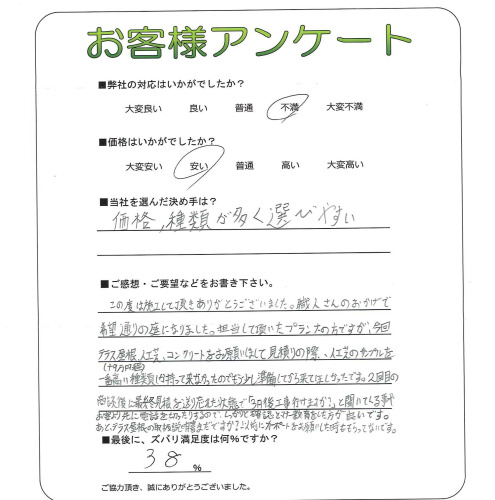 お客様アンケート
■弊社の対応はいかがでしたか?
大変良い 良い 普通 不満 大変不満
■価格はいかがでしたか?
大変安い 安い 普通 高い 大変高い
■当社を選んだ決め手は?
価格,種類が多く選びやすい
■ご感想・ご要望などをお書き下さい。
この度は施工して頂きありがとうございました。職人さんのおかげで
希望通りの庭になりました。担当して頂いたプランナーの方ですが、今回
テラス屋根、人工芝、コンクリートをお願いをして見積りの際、人工芝のサンプルを
(+9万円程)
一番高い種類しか持って来なかったのでもう少し準備してから来てほしかったです。2回目の
商談後に最終見積を送り忘れた状態で「3月後工事行けますか?」と聞いてくる事や
しっかりと確認と 教育をした方が良いです。
あと、テラス屋根の取扱説明書まだですか?以前にカーポートをお願いした時ももらってないです。
■最後に、ズバリ満足度は何%ですか?
38 %
ご協力頂き、誠にありがとうございました。